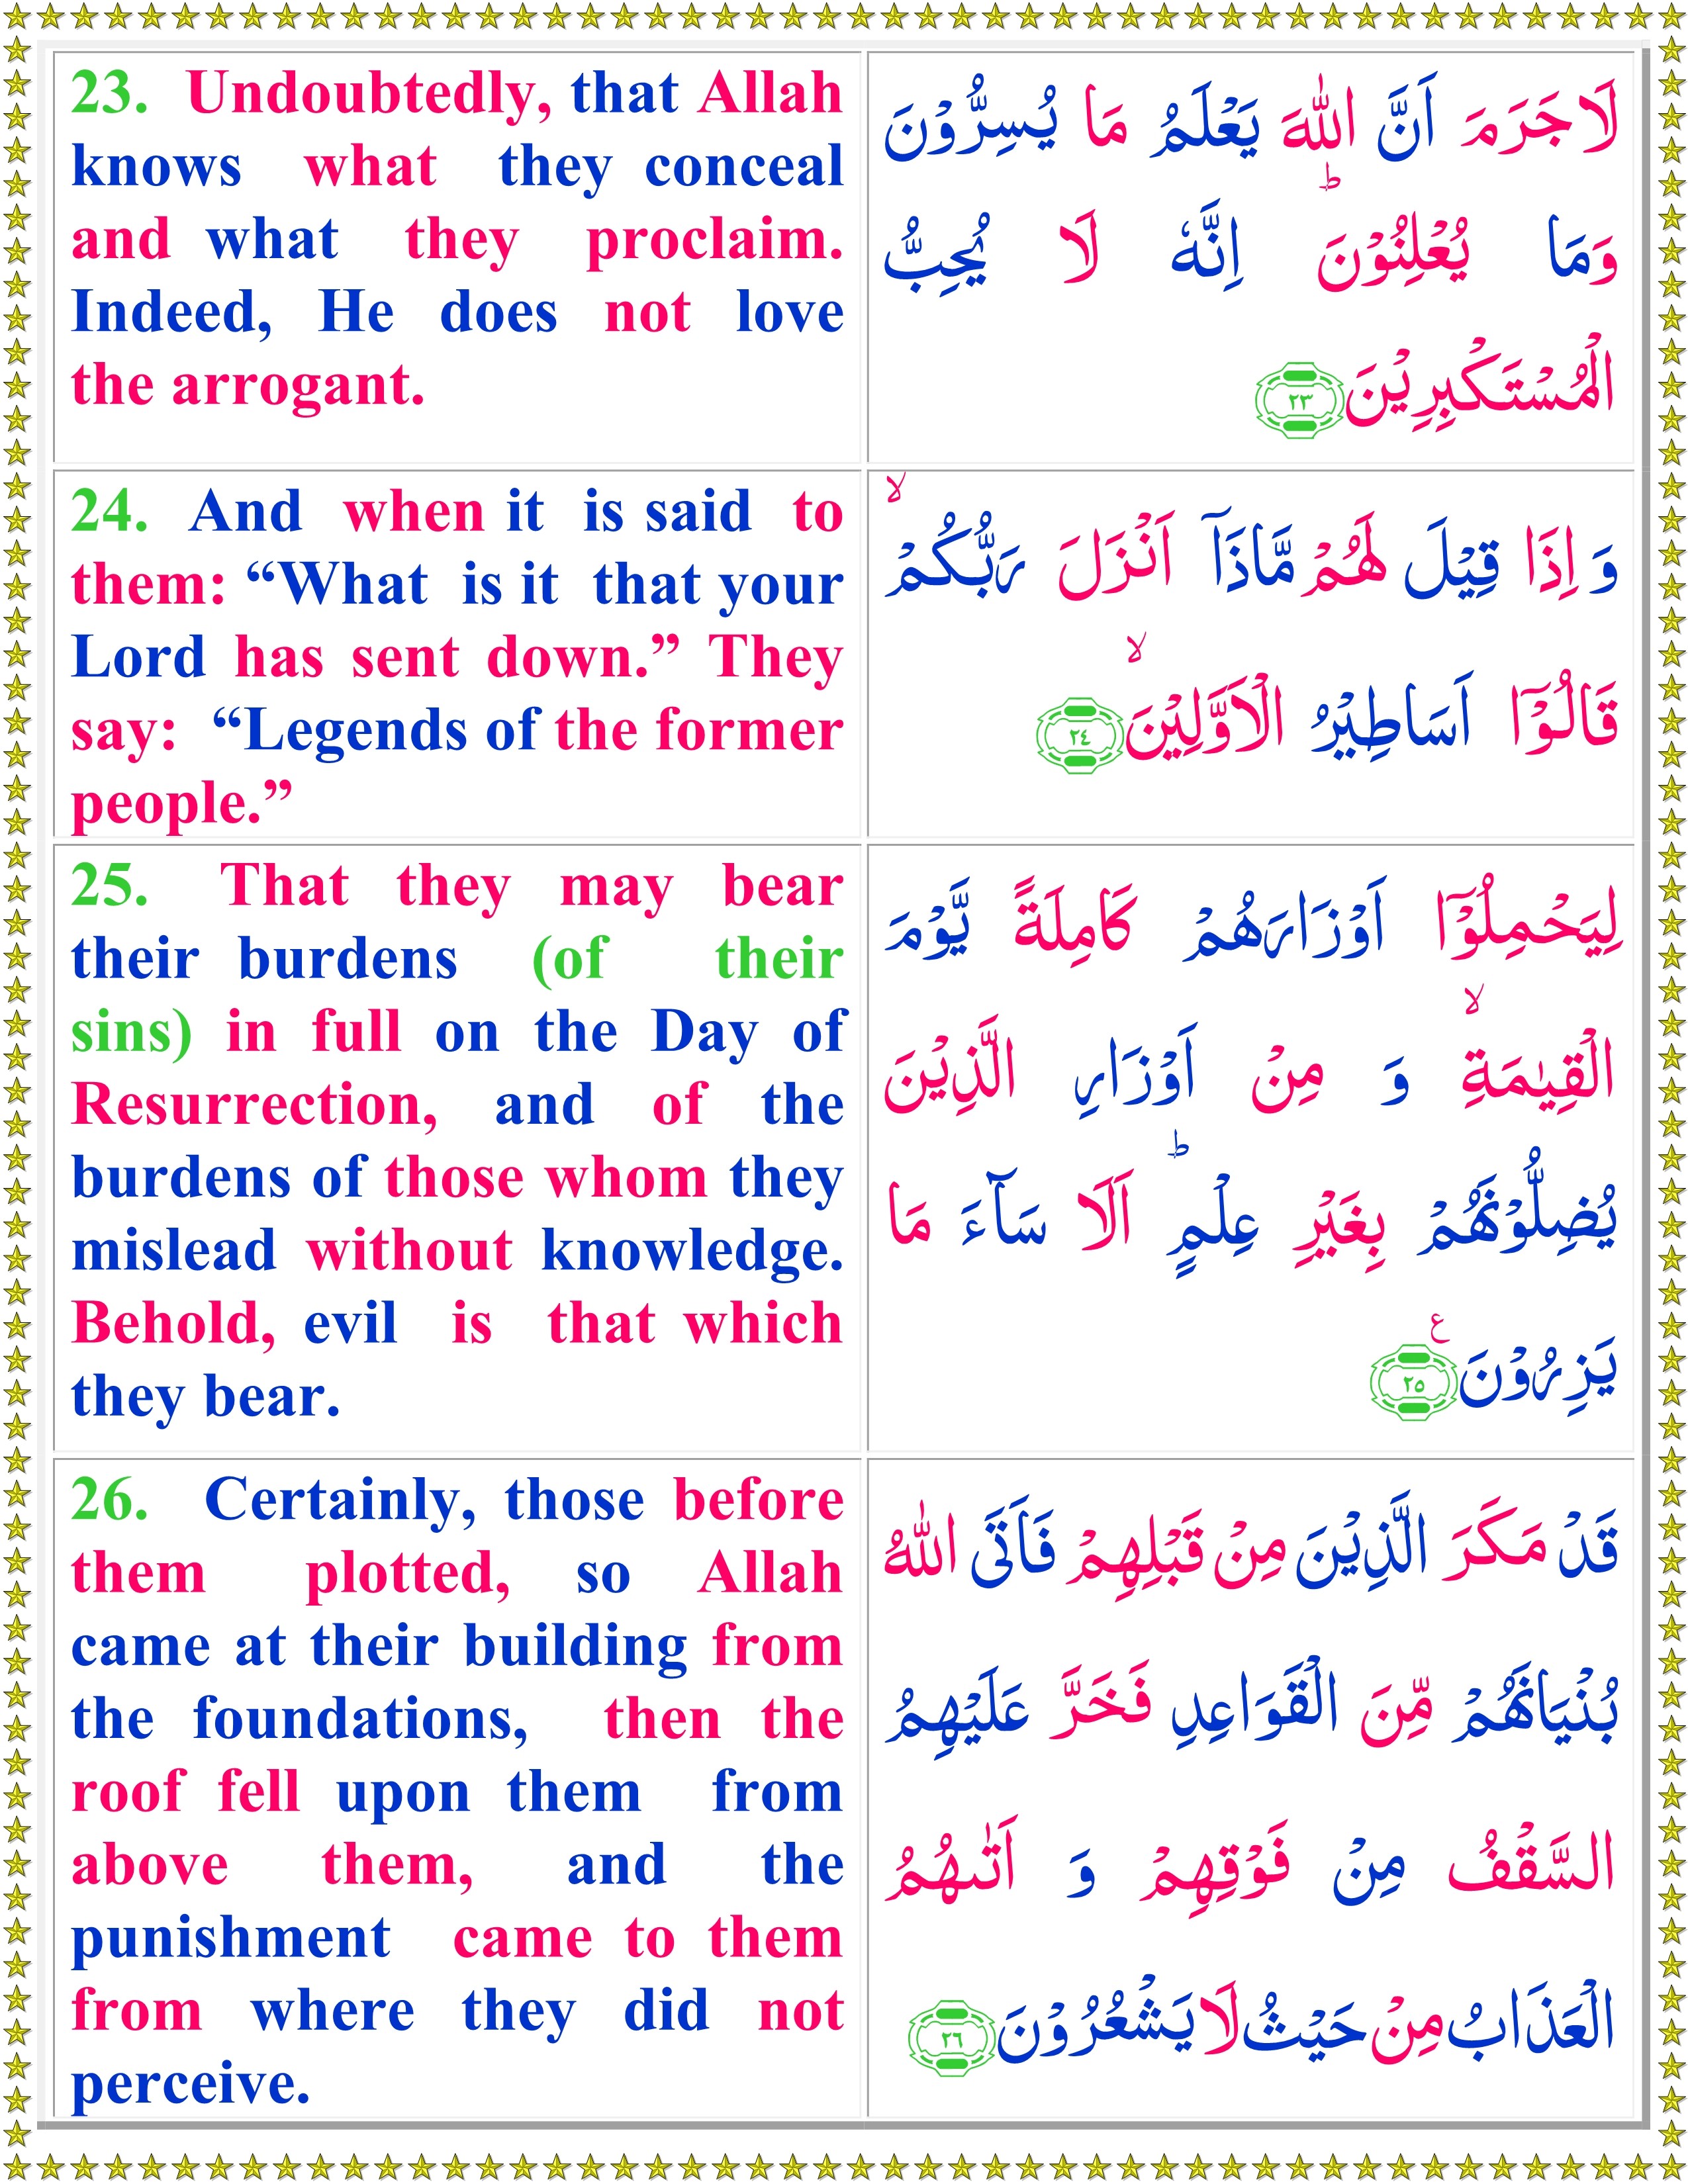 23. Undoubtedly, that Allah
knows what they conceal
and what they proclaim.
Indeed, He does not love
the arrogant.
لَا جَرَمَ اَنَّ اللّٰهَ يَعْلَمُ مَا يُسِرُّوْنَ
وَمَا يُعْلِنُوْنَ ؕ اِنَّهٗ لَا يُحِبُّ
الْمُسْتَكْبِرِيْنَ ٢٣
24. And when it is said to
them: “What is it that your
Lord has sent down.” They
say: “Legends of the former
people.”
وَ اِذَا قِيْلَ لَهُمْ مَّاذَاۤ اَنْزَلَ رَبُّكُمْ ۙ
قَالُوْۤا اَسَاطِيْرُ الْاَوَّلِيْنَ ۙ ٢٤
25. That they may bear
their burdens (of their
sins) in full on the Day of
Resurrection, and of the
burdens of those whom they
mislead without knowledge.
Behold, evil is that which
they bear.
لِيَحْمِلُوْۤا اَوْزَارَهُمْ كَامِلَةً يَّوْمَ
الْقِيٰمَةِ ۙ وَ مِنْ اَوْزَارِ الَّذِيْنَ
يُضِلُّوْنَهُمْ بِغَيْرِ عِلْمٍ ؕ اَلَا سَآءَ مَا
يَزِرُوْنَ ٢٥ ع
26. Certainly, those before
them plotted, so Allah
came at their building from
the foundations, then the
roof fell upon them from
above them, and the
punishment came to them
from where they did not
perceive.
قَدْ مَكَرَ الَّذِيْنَ مِنْ قَبْلِهِمْ فَاَتَى اللّٰهُ
بُنْيَانَهُمْ مِّنَ الْقَوَاعِدِ فَخَرَّ عَلَيْهِمُ
السَّقْفُ مِنْ فَوْقِهِمْ وَ اَتٰىهُمُ
الْعَذَابُ مِنْ حَيْثُ لَا يَشْعُرُوْنَ ٢٦